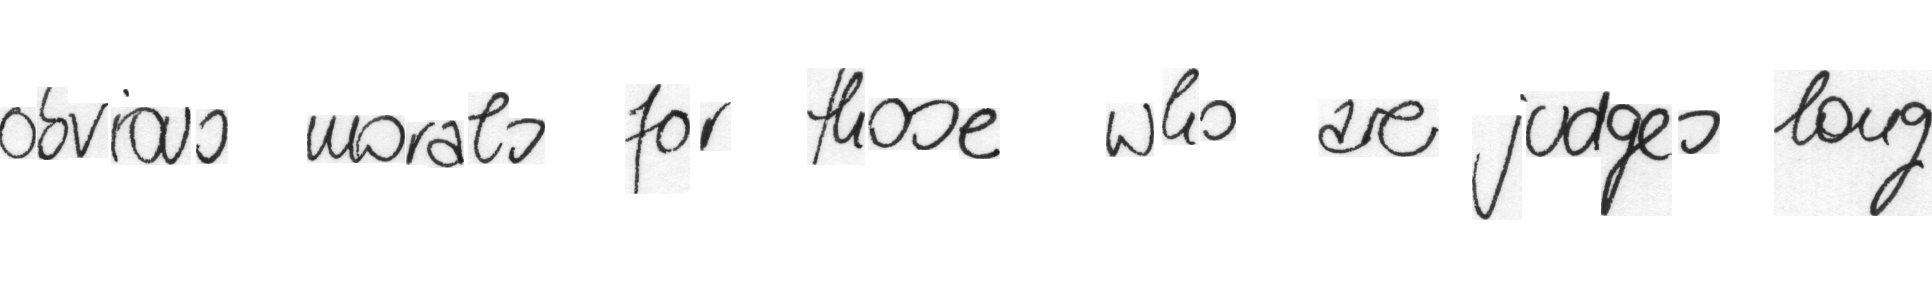 obvious morals for those who are judges long